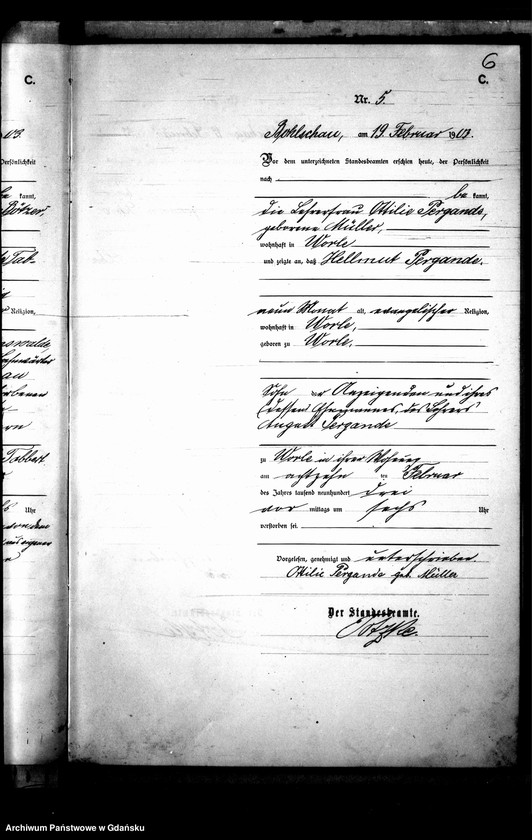 6
C.
C.
Nr. 5.
Rohlschau, am 19. Februar 1903.
Vor dem unterzeichneten Standesbeamten erschien heute, der Persönlichkeit
nach
be kannt,
die Lehrerfrau Ottilie Pergande,
geborene Müller,
wohnhaft in Worle
und zeigte an, daß Hellmut Pergande,
neun Monat alt, evangelischer Religion,
wohnhaft in Worle,
geboren zu Worle,
Sohn der Anzeigenden und ihres
Ehemannes, des Lehrers
August Pergande
zu Worle in ihrer Wohnung
am achtzehn ten Februar
des Jahres tausend neunhundert drei
vor mittags um sechs Uhr
verstorben sei.
Vorgelesen, genehmigt und unterschrieben.
Ottilie Pergande geb. Müller
Der Standesbeamte.
03.
Persönlichkeit
kannt,
Religion,
Uhr
Archiwum Państwowe w Gdańsku